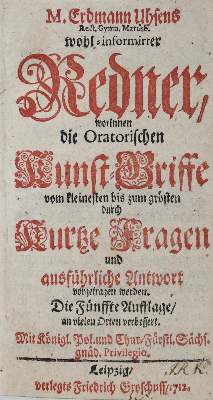 M. Erdmann Uhsens
Rect. Gymn. Martisb.
wohl-informirter
Redner,
worinnen
die Oratorischen
Kunst-Griffe
vom kleinesten bis zum grösten
durch
Kurtze Fragen
und
ausführliche Antwort
vorgetragen werden.
Die Fünffte Aufflage/
an vielen Orten verbessert.
Mit Königl. Pol. und Chur-Fürstl. Sächs.
gnäd. Privilegio.
Leipzig/
verlegts Friedrich Groschuff/ 712.